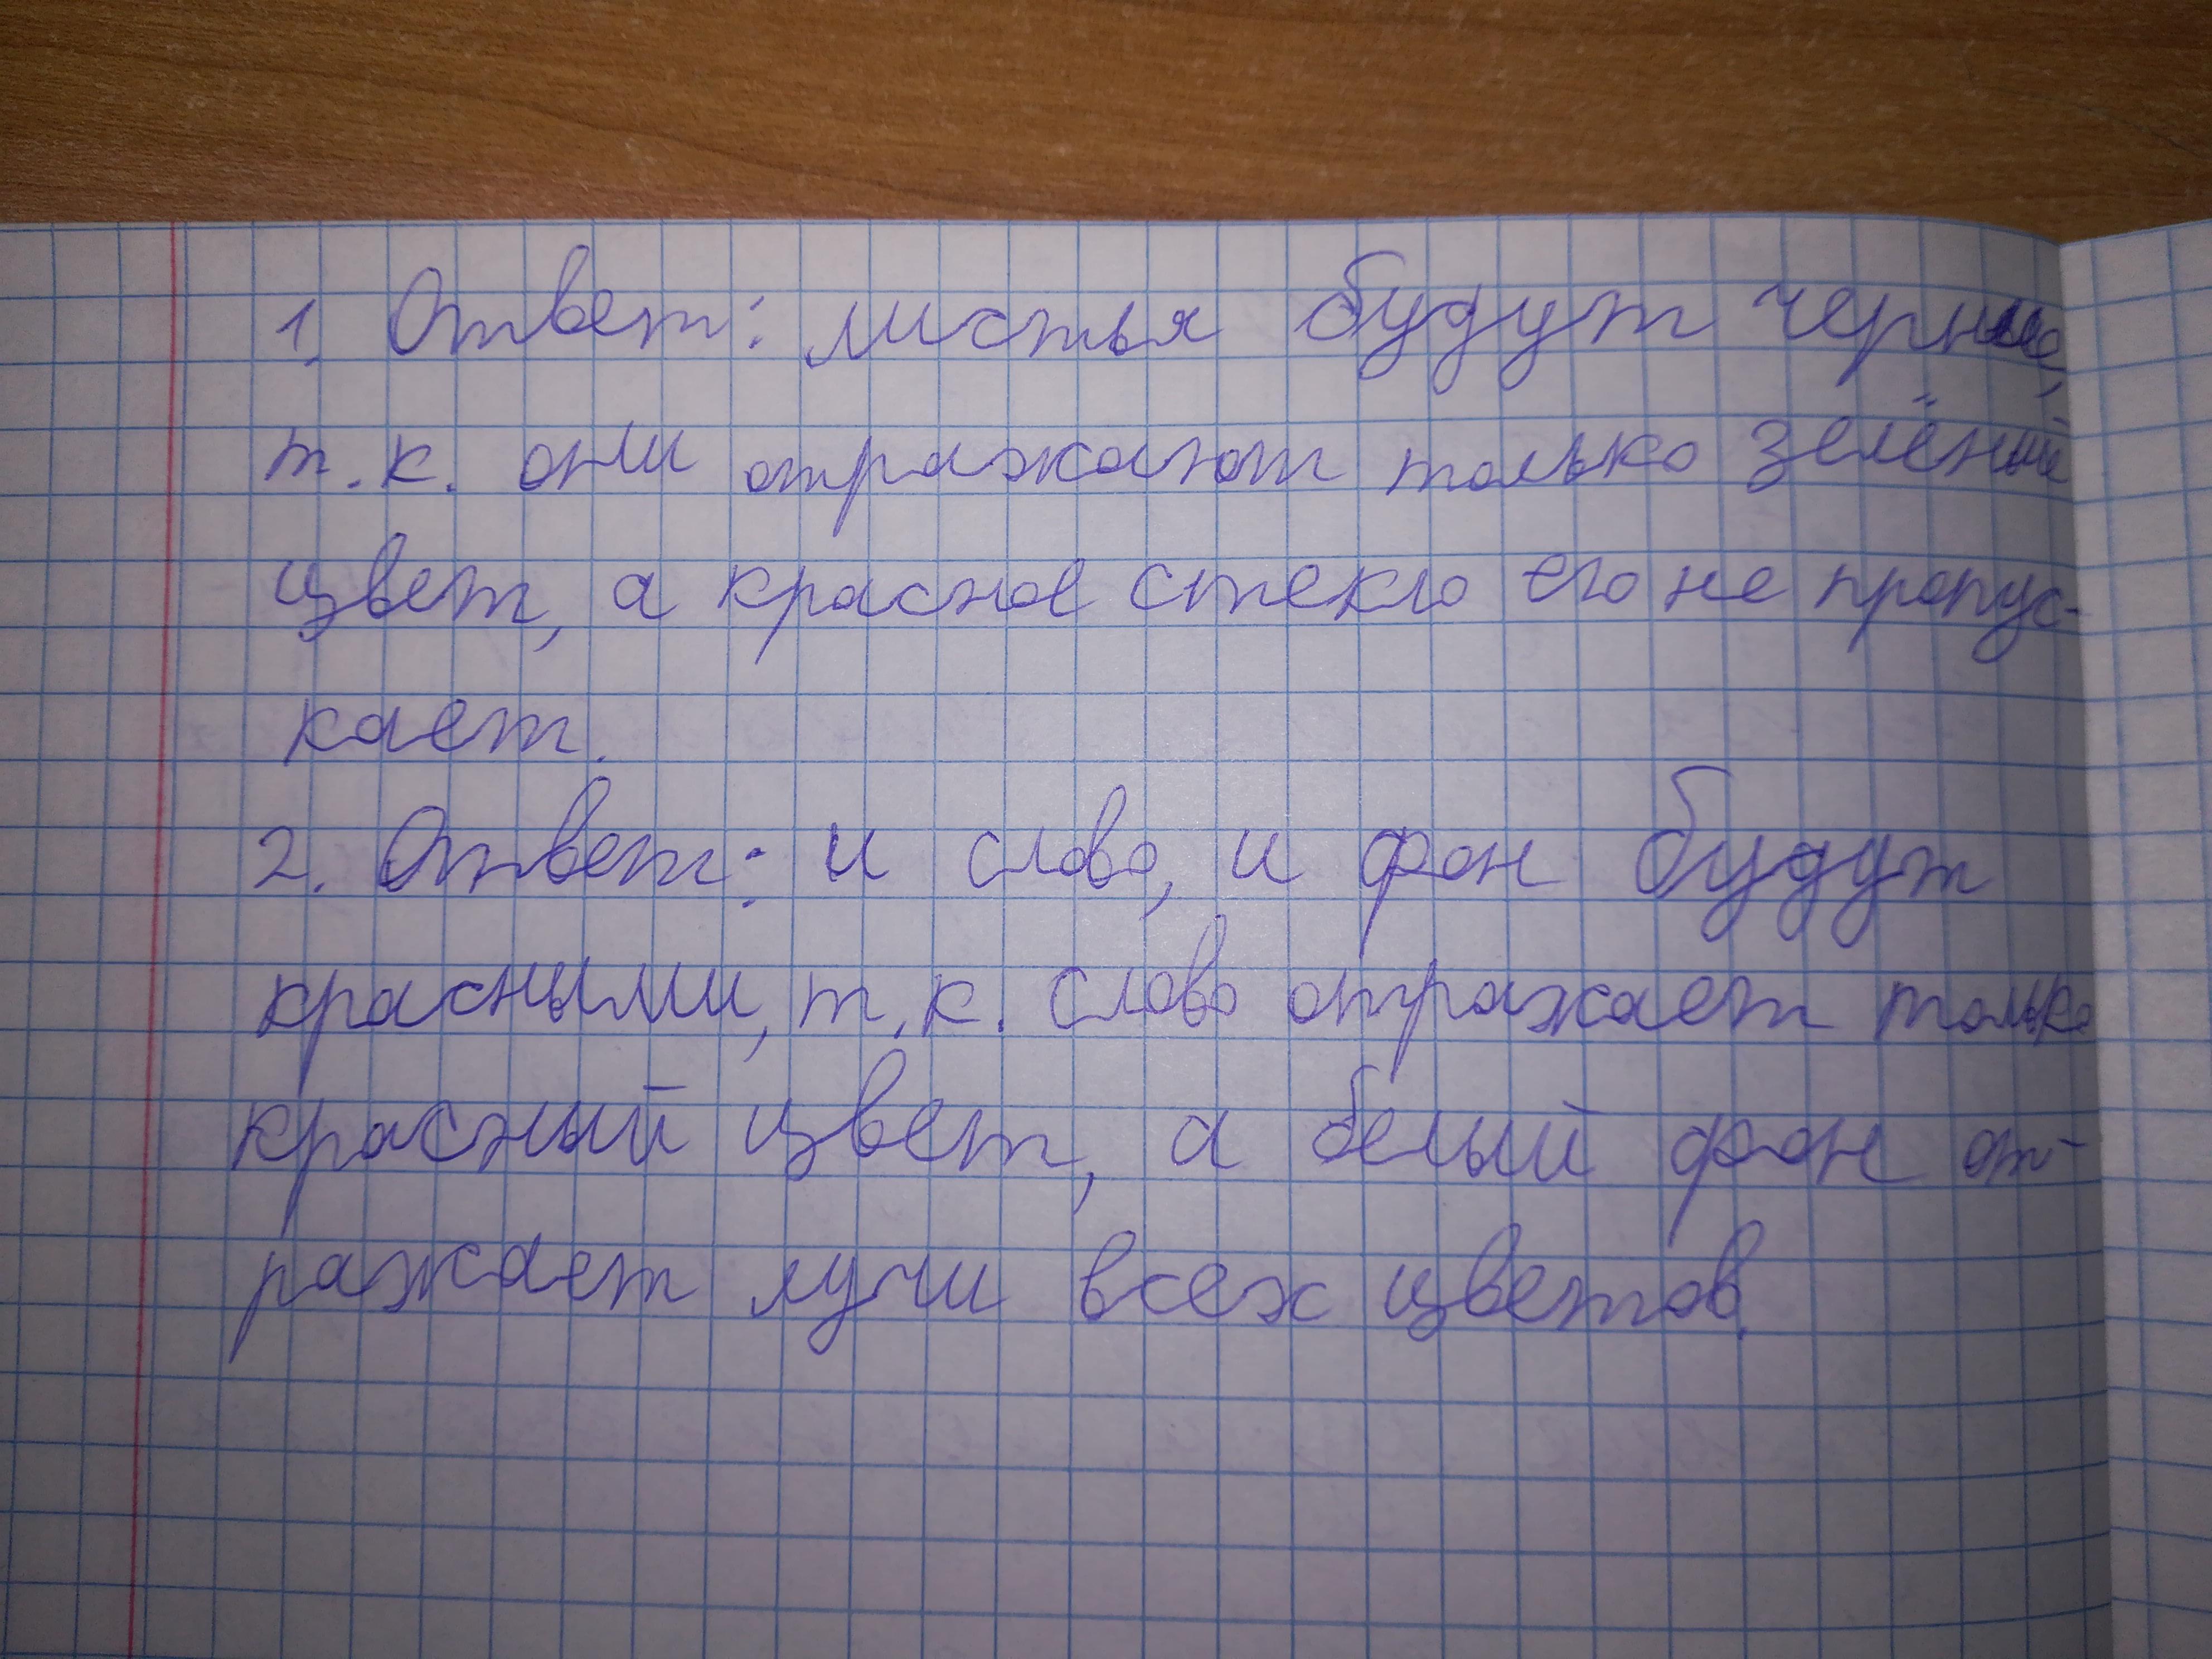 1. Ответ: листья будут черные,
т.к. они отражают только зелёный
цвет, а красное стекло его не пропус-
кает.
2. Ответ: и слово, и фон будут
красными, т.к. слово отражает только
красный цвет, а белый фон от-
ражает лучи всех цветов.